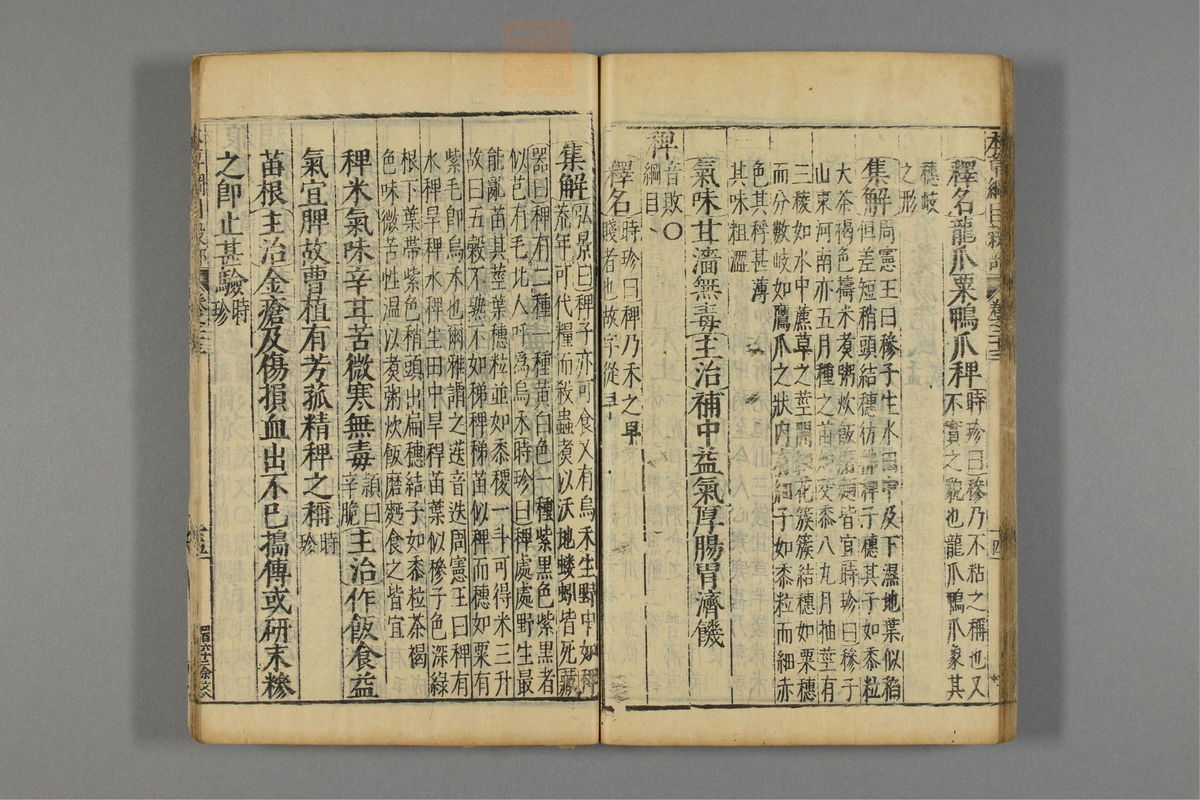 釋名龍爪粟鴨爪稗時珍曰穇乃不粘之稱也又
不實之貌也龍爪鴨爪象其
穗岐
之形
集解周憲王曰穇子生水田中及下濕地葉似稻
但差短稍頭結穗彷彿稗子穗其子如黍粒
大茶褐色擣米煮粥炊飯磨麪皆宜時珍曰穇子
山東河南亦五月種之苗如茭黍八九月抽莖有
三稜如水中藨草之莖開細花簇簇結穗如粟穗
而分數岐如鷹爪之狀內有細子如黍粒而細赤
色其稃甚薄
其味粗澀
氣味甘濇無毒主治補中益氣厚腸胃濟饑
稗音敗〇
綱目
釋名時珍曰稗乃禾之卑
賤者也故字從卑
集解弘景曰稗子亦可食又有烏禾生野中如稗
荒年可代糧而殺蟲煮以沃地螻蚓皆死藏
器曰稗有二種一種黃白色一種紫黑色紫黑者
似芑有毛北人呼為烏禾時珍曰稗處處野生最
能亂苗其莖葉穗粒並如黍稷一斗可得米三升
故曰五穀不熟不如稊稗稊苗似稗而穗如粟有
紫毛即烏禾也爾雅謂之䒶音迭周憲王曰稗有
水稗旱稗水稗生田中旱稗苗葉似穇子色深綠
根下葉帶紫色稍頭出扁穗結子如黍粒茶褐
色味微苦性溫以煮粥炊飯磨麪食之皆宜
稗米氣味辛甘苦微寒無毒穎曰
辛脆主治作飯食益
氣宜脾故曹植有芳菰精稗之稱時
珍
苗根主治金瘡及傷損血出不已搗傅或研末糝
之即止甚驗時
珍